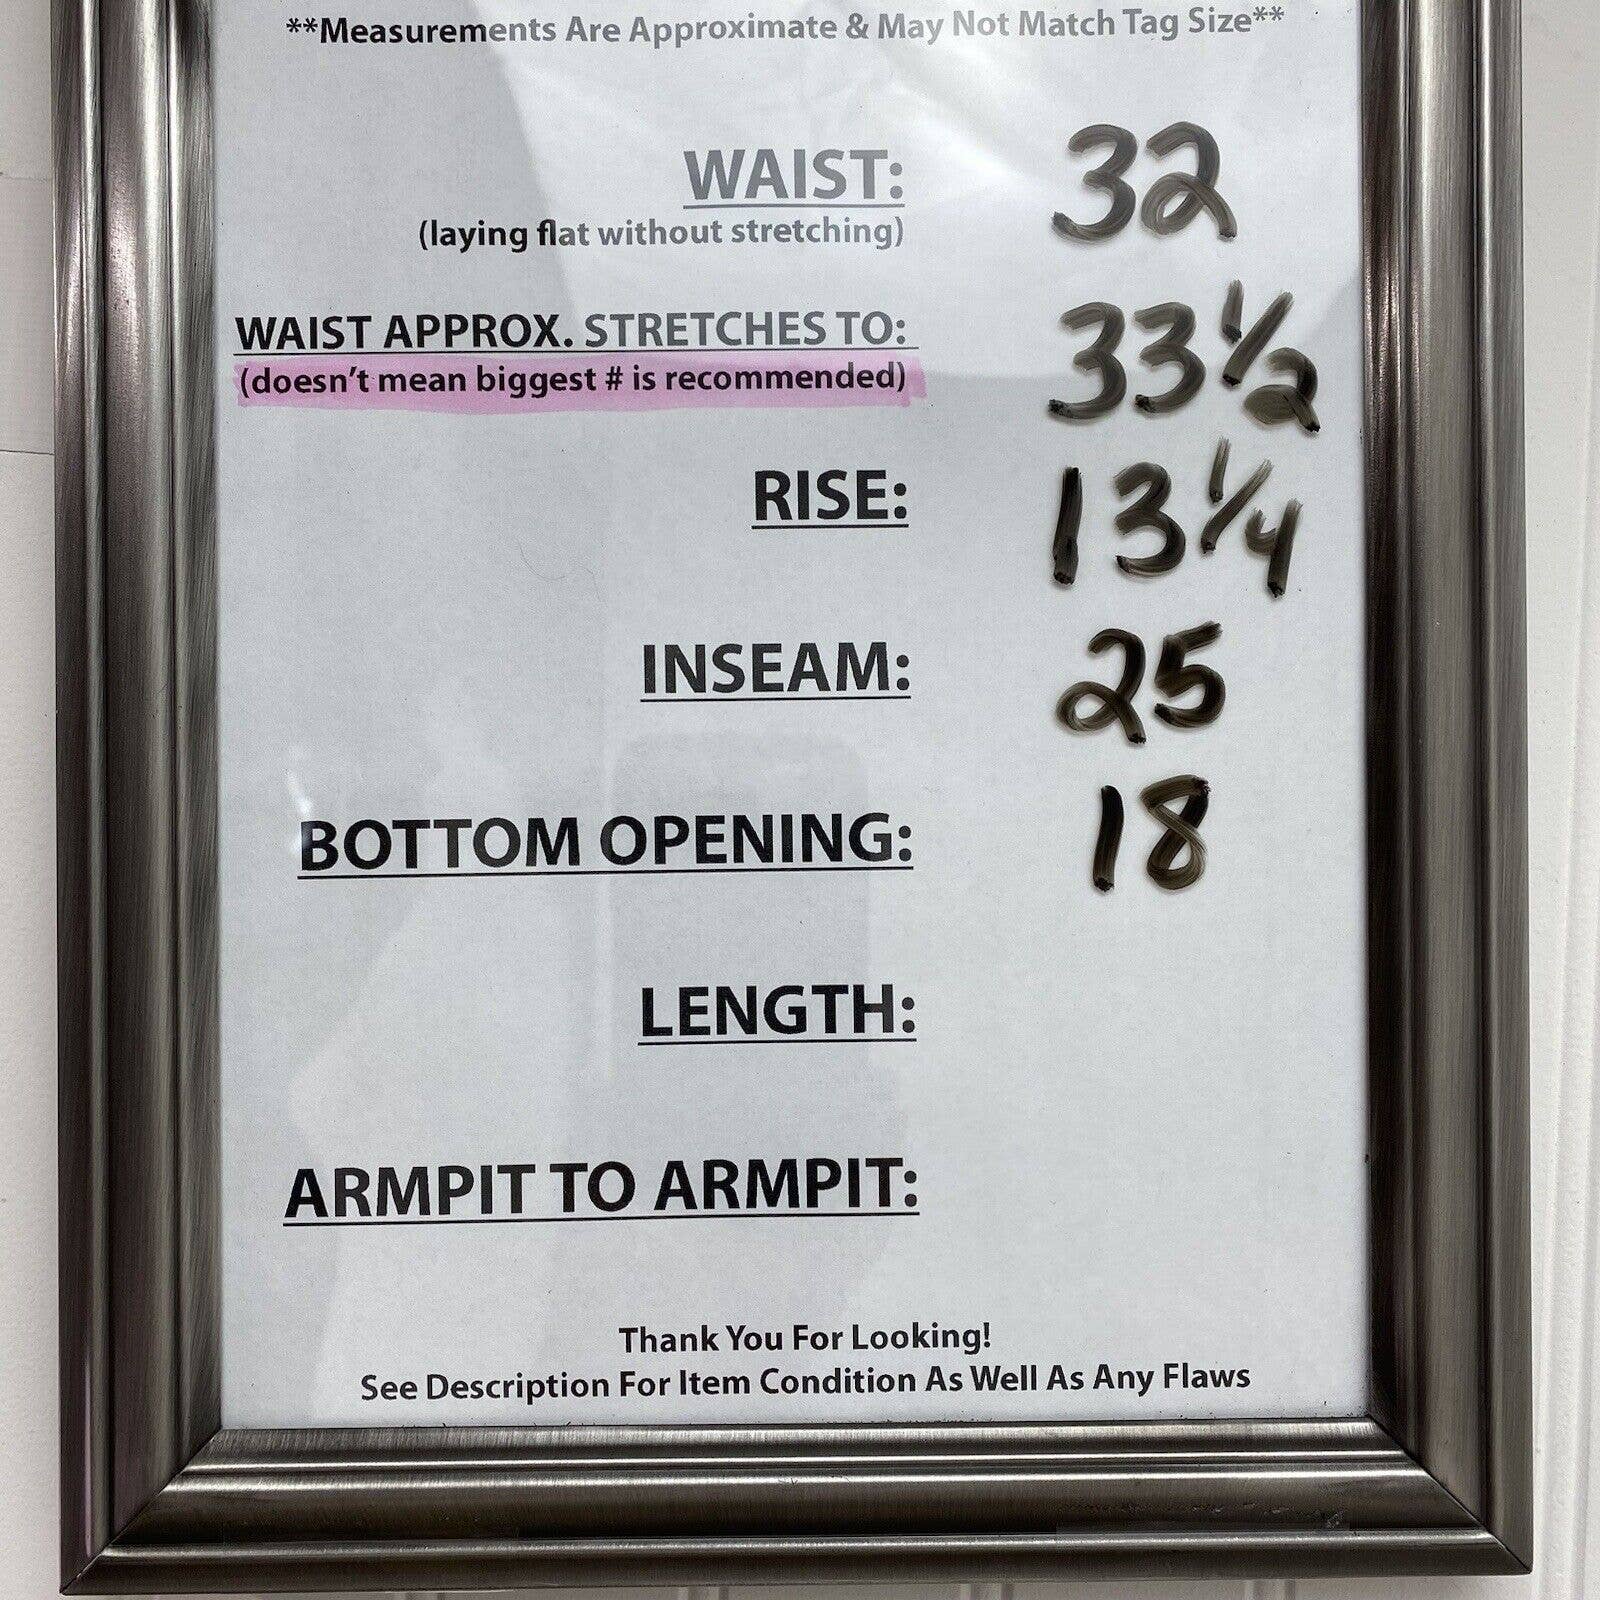 **Measurements Are Approximate & May Not Match Tag Size**
WAIST: 32
(laying flat without stretching)
WAIST APPROX. STRETCHES TO: 33 1/2
(doesn't mean biggest # is recommended)
RISE: 13 1/4
INSEAM: 25
BOTTOM OPENING: 18
LENGTH:
ARMPIT TO ARMPIT:
Thank You For Looking!
See Description For Item Condition As Well As Any Flaws